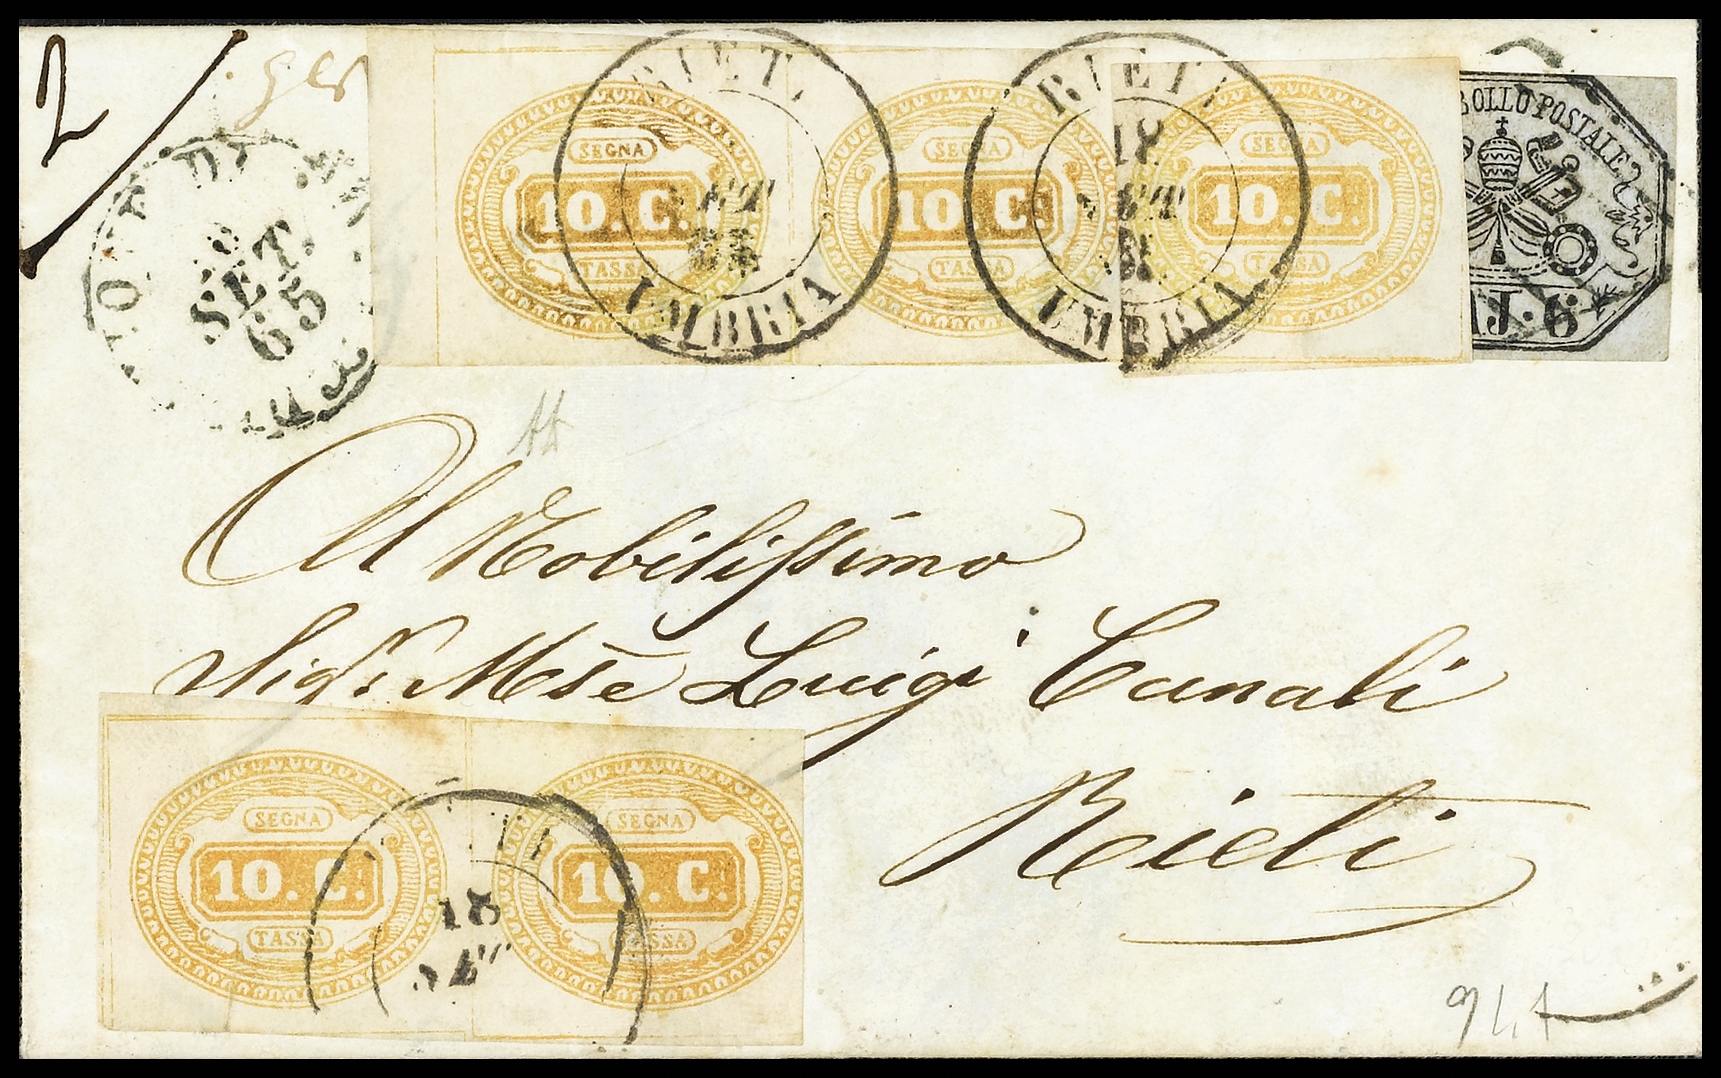 2
RIETI
UMBRIA
RIETI
18
SET
UMBRIA
SEGNA
10. C.
TASSA
SEGNA
10. C.
TASSA
SEGNA
10. C.
TASSA
BOLLO POSTALE
BAJ. 6
DI
SET.
65
Al Nobilissimo
Sigr. Mse Luigi Canali
Rieti
SEGNA
10. C.
TASSA
SEGNA
10. C.
TASSA
18
SET